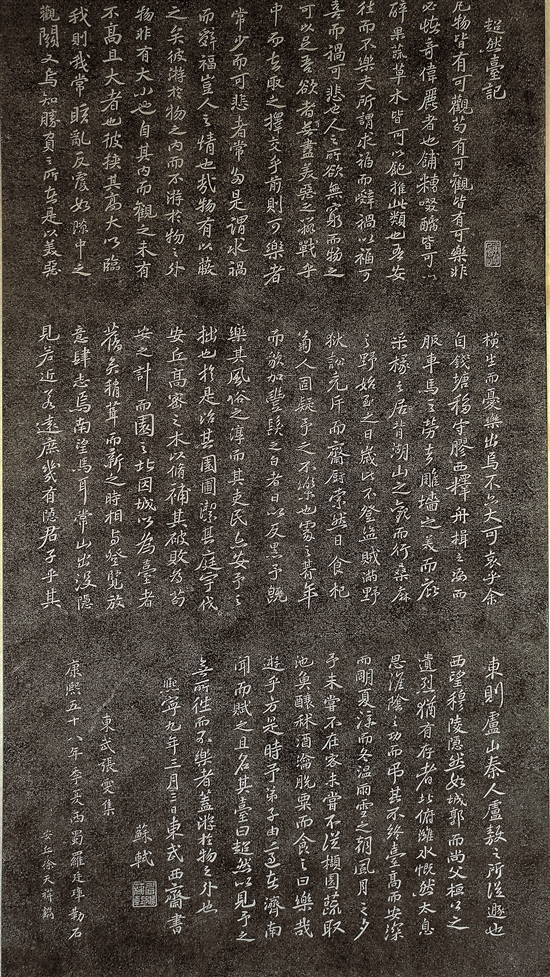 超然臺記
凡物皆有可觀苟有可觀皆有可樂非
必怪奇偉麗者也餔糟啜醨皆可以
醉果蔬草木皆可以飽推此類也吾安
往而不樂夫所謂求福而辭禍以福可
喜而禍可悲也人之所欲無窮而物之
可以足吾欲者有盡美惡之辨戰乎
中而去取之擇交乎前則可樂者
常少而可悲者常多是謂求禍
而辭福豈人之情也哉物有以蔽
之矣彼游於物之內而不游於物之外
物非有大小也自其內而觀之未有
不高且大者也彼挾其高大以臨
我則我常眩亂反覆如隙中之
觀鬭又烏知勝負之所在是以美惡
橫生而憂樂出焉不亦大可哀乎余
自錢塘移守膠西釋舟楫之安而
服車馬之勞去雕墻之美而庇
采椽之居背湖山之觀而行桑麻
之野始至之日歲比不登盜賊滿野
獄訟充斥而齋廚索然日食杞
菊人固疑予之不樂也處之朞年
而貌加豐髮之白者日以反黑予既
樂其風俗之淳而其吏民亦安予之
拙也於是治其園圃潔其庭宇伐
安丘高密之木以脩補其破敗為苟
安之計而園之北因城以為臺者
舊矣稍葺而新之時相與登覽放
意肆志焉南望馬耳常山出沒隱
見若近若遠庶幾有隱君子乎其
東則盧山秦人盧敖之所從遯也
西望穆陵隱然如城郭而尚父桓公之
遺烈猶有存者北俯濰水慨然太息
思淮陰之功而弔其不終臺高而安深
而明夏涼而冬溫雨雪之朝風月之夕
予未嘗不在客未嘗不從擷園蔬取
池魚釀秫酒瀹脫粟而食之曰樂哉
遊乎方是時予弟子由適在濟南
聞而賦之且名其臺曰超然以見予之
無所往而不樂者蓋游於物之外也
熙寧九年三月三日東武西齋書
蘇軾
東武張雯集
康熙五十八年季夏西蜀羅廷璋勒石
安丘徐天祥鐫